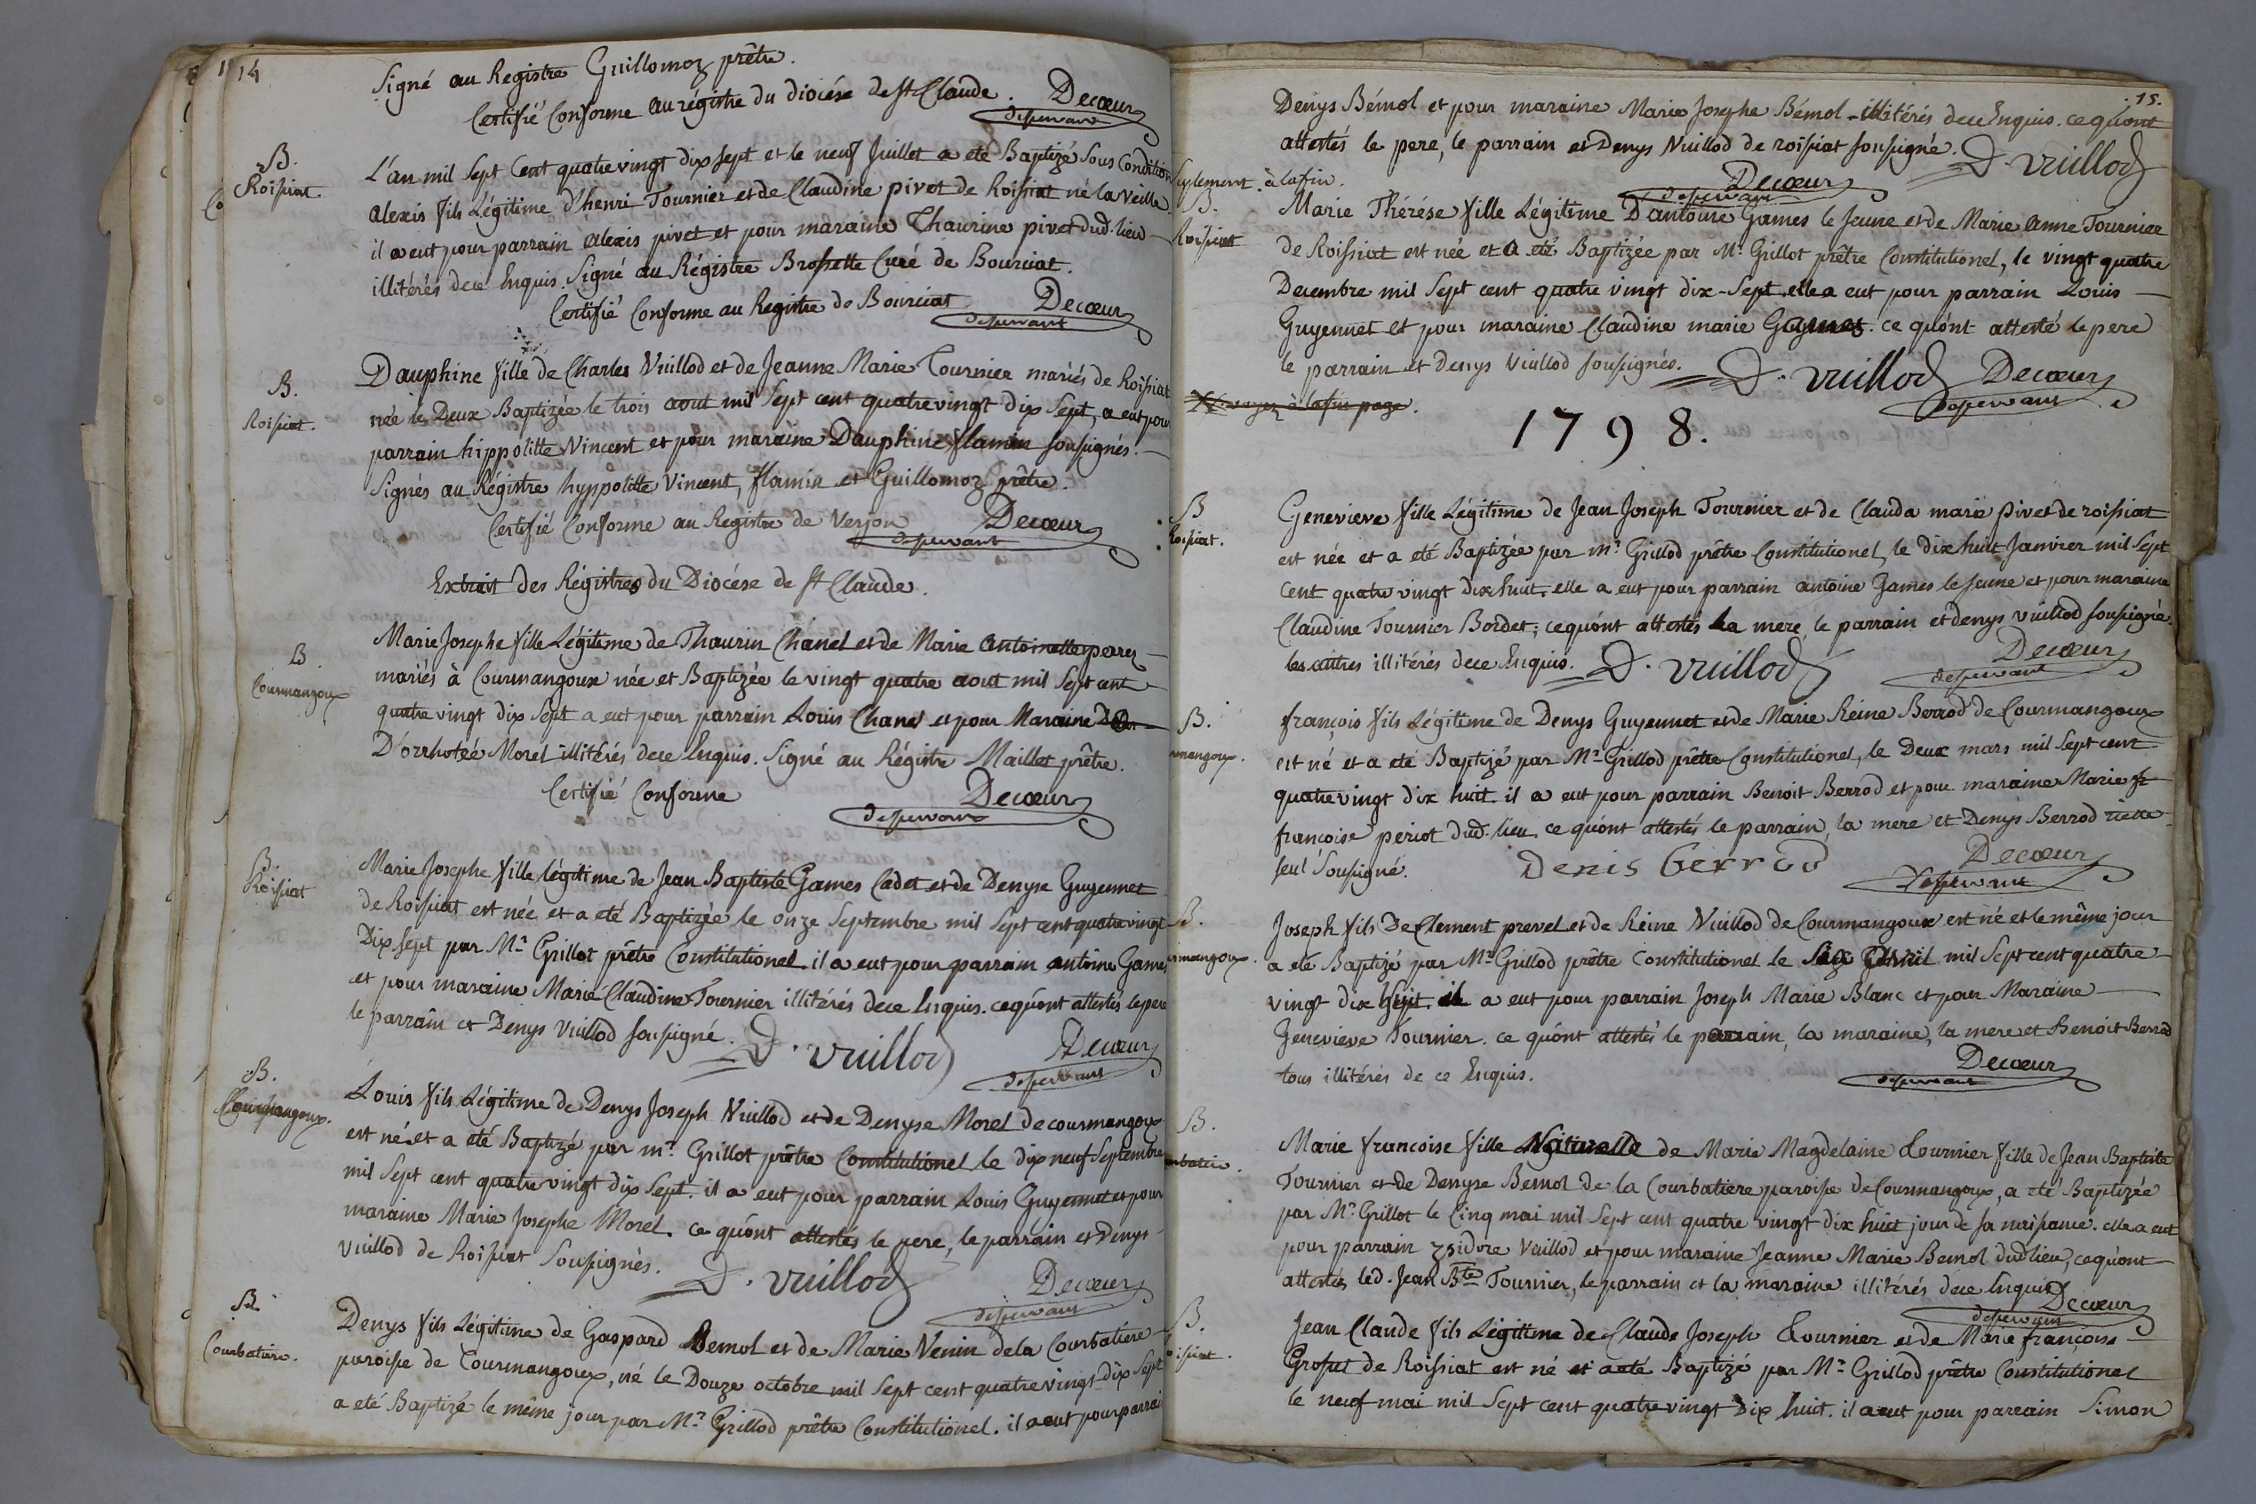 14
Signé au Registre Guillomoz prêtre.
Certifié Conforme au régistre du diocése de St Claude. Decœur
desservant
B.
Roissiat
L'an mil Sept Cent quatre vingt dix Sept et le neuf Juillet a eté Baptizé Sous Condition
alexis fils Légitime d'henri Tournier et de Claudine pivet de Roissiat né la veille
il a eut pour parrain alexis pivet et pour maraine Thaurine pivet dud. lieu
illitérés de ce Enquis. Signé au Régistre Brossette Curé de Bourciat.
Certifié Conforme au Registre de Bourciat Decœur
desservant
B.
Roissiat.
Dauphine fille de Charles Vuillod et de Jeanne Marie Tournier mariés de Roissiat
née le Deux Baptizée le trois aout mil Sept cent quatre vingt dix Sept, a eut pour
parrain hippolitte Vincent et pour maraine Dauphine flamin soussignés.
Signés au Régistre hyppolitte Vincent, flamin et Guillomoz prêtre.
Certifié Conforme au Registre de Verjon Decœur
desservant
Extrait des Régistres du Diocése de St Claude.
B.
Courmangoux
Marie Josephe fille Légitime de Thaurin Chanel et de Marie Antoinette perrez
mariés à Courmangoux née et Baptizée le vingt quatre aout mil Sept cent
quatre vingt dix Sept a eut pour parrain Louis Chanel et pour Maraine
D'orrhotée Morel illitérés de ce Enquis. Signé au Régistre Maillet prêtre.
Certifié Conforme Decœur
desservant
B.
Roissiat
Marie Josephe fille légitime de Jean Baptiste Games Cadet et de Denyse Guyennet
de Roissiat est née et a eté Baptizée le onze Septembre mil Sept cent quatre vingt
Dix Sept par Mr. Grillot prêtre Constitutionel il a eut pour parrain antoine Games
et pour maraine Marie Claudine Tournier illitérés de ce Enquis. ce qu'ont attestés le pere
le parrain et Denys Vuillod soussigné. D. vuillod Decœur
desservant
B.
Courmangoux.
Louis fils Légitime de Denys Joseph Vuillod et de Denyse Morel de courmangoux
est né et a eté Baptizé par mr. Grillot prêtre Constitutionel le dix neuf Septembre
mil Sept cent quatre vingt dix Sept. il a eut pour parrain Louis Guyennet et pour
maraine Marie Josephe Morel. ce qu'ont attestés le pere, le parrain et Denys
Vuillod de Roissiat Soussignés. D. vuillod Decœur
desservant
B.
Courbatiere.
Denys fils Légitime de Gaspard Bemol et de Marie Venin de la Courbatiere
paroisse de Courmangoux, né le Douze octobre mil Sept cent quatre vingt dix Sept
a eté Baptizé le même jour par Mr. Grillod prêtre Constitutionel. il a eut pour parrai
15.
Denys Bémol et pour maraine Marie Josephe Bémol illitérés de ce Enquis. ce qu'ont
attestés le pere, le parrain et Denys Vuillod de roissiat soussigné. D. vuillod
à la fin. Decœur
desservant
B.
Roissiat
Marie Thérése fille Légitime D'antoine Games le Jeune et de Marie Anne Tournier
de Roissiat est née et a eté Baptizée par Mr. Grillot prêtre Constitutionel, le vingt quatre
Decembre mil Sept cent quatre vingt dix-Sept. elle a eut pour parrain Louis
Guyennet et pour maraine Claudine marie Games. ce qu'ont attesté le pere
le parrain et Denys Vuillod soussignés. D. vuillod Decœur
desservant
voyez à la fin page.
1798.
B
Roissiat.
Genevieve fille Légitime de Jean Joseph Tournier et de Clauda marie Pivet de roissiat
est née et a eté Baptizée par mr. Grillod prêtre Constitutionel, le dix huit Janvier mil Sept
cent quatre vingt dix huit. elle a eut pour parrain antoine Games le Jeune et pour maraine
Claudine Tournier Bordet; ce qu'ont attestés la mere, le parrain et denys vuillod soussigné.
les autres illitérés de ce Enquis. D. vuillod Decœur
desservant
B.
rmangoux.
françois fils Légitime de Denys Guyennet et de Marie Reine Berrod de Courmangoux
est né et a eté Baptizé par Mr. Grillod prêtre Constitutionel, le Deux mars mil Sept cent
quatre vingt dix huit. il a eut pour parrain Benoit Berrod et pour maraine Marie fr
francoise periot dud. lieu. ce qu'ont attestés le parrain, la mere et Denys Berrod
seul Soussigné. Denis berrod Decœur
desservant
B.
rmangoux.
Joseph fils De Clement prevel et de Reine Vuillod de Courmangoux est né et le même jour
a eté Baptizé par Mr. Grillod prêtre Constitutionel le Seize Avril mil Sept cent quatre
vingt dix huit. il a eut pour parrain Joseph Marie Blanc et pour Maraine
Genevieve Tournier. ce qu'ont attestés le parrain, la maraine, la mere et Benoit Berrod
tous illitérés de ce Enquis. Decœur
desservant
B.
rbatiere.
Marie francoise fille Naturelle de Marie Magdelaine Tournier fille de Jean Baptiste
Tournier et de Denyse Bemol de la Courbatiere paroisse de Courmangoux, a eté Baptizée
par Mr. Grillot le Cinq mai mil Sept cent quatre vingt dix huit jour de sa naissance. elle a eut
pour parrain isidore Vuillod et pour maraine Jeanne Marie Bemol dud lieu, ce qu'ont
attestés led. Jean Bte Tournier, le parrain et la maraine illitérés de ce Enquis Decœur
desservant
B.
oissiat.
Jean Claude fils Légitime de Claude Joseph Tournier et de Marie françoise
Grosset de Roissiat est né et a eté Baptizé par Mr. Grillod prêtre Constitutionel
le neuf mai mil Sept cent quatre vingt Dix huit. il a eut pour parrain Simon